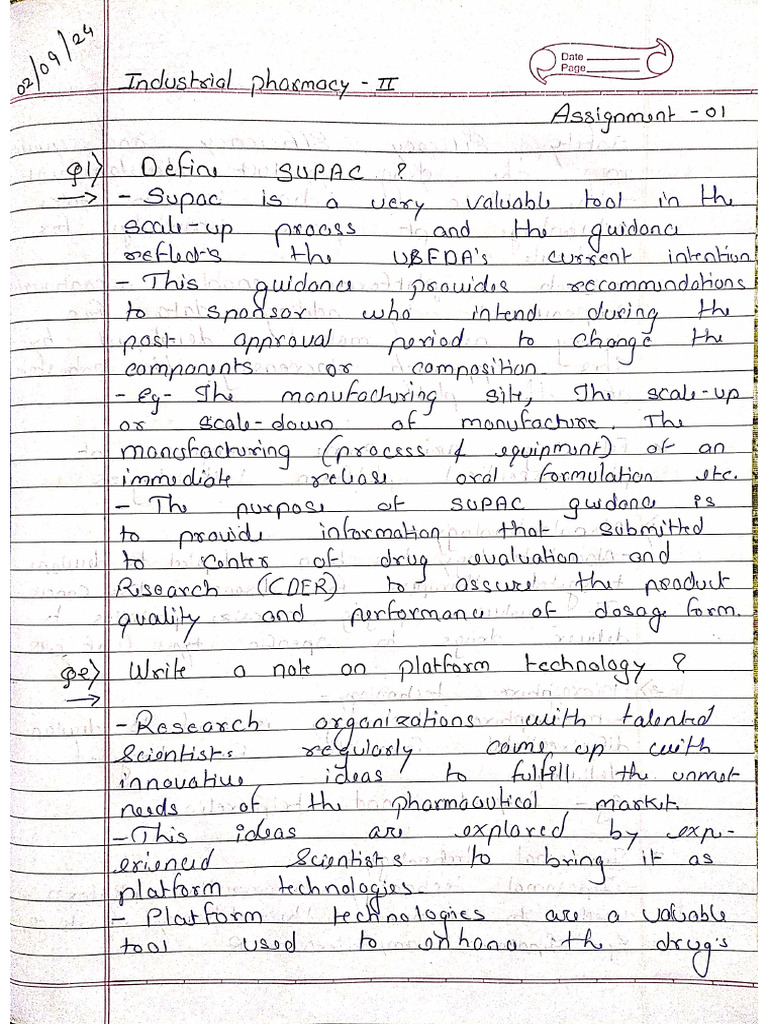 02/09/24
Date
Page
Industrial pharmacy - II
Assignment - 01
Q1) Define SUPAC ?
→ - Supac is a very valuable tool in the
scale-up process and the guidance
reflect's the USFDA's current intention
- This guidance provides recommendations
to sponsor who intend during the
post approval period to change the
components or composition.
- Eg- The manufacturing site, The scale-up
or scale-down of manufacture. The
manufacturing (process & equipment) of an
immediate release oral formulation etc.
- The purpose of SUPAC guidance is
to provide information that submitted
to center of drug evaluation and
Research (CDER) to assure the product
quality and performance of dosage form.
Q2) Write a note on platform technology ?
→
- Research organizations with talented
Scientists regularly come up with
innovative ideas to fulfill the unmet
needs of the pharmaceutical market.
- This ideas are explored by exp-
erienced Scientists to bring it as
platform technologies.
- Platform technologies are a valuable
tool used to enhance the drug's